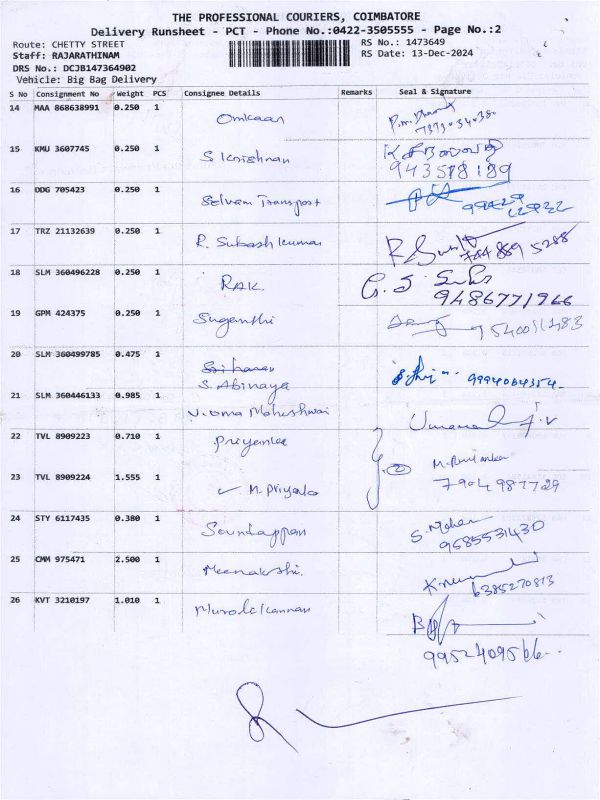 THE PROFESSIONAL COURIERS, COIMBATORE
Delivery Runsheet - PCT - Phone No.:0422-3505555 - Page No.:2
Route: CHETTY STREET RS No.: 1473649
Staff: RAJARATHINAM RS Date: 13-Dec-2024
DRS No.: DCJB147364902
Vehicle: Big Bag Delivery
S No Consignment No Weight PCS Consignee Details Remarks Seal & Signature
14 MAA 868638991 0.250 1 Omkaar
15 KMU 3607745 0.250 1 S. Krishnan
943518189
16 DDG 705423 0.250 1 Selvam Transpost
17 TRZ 21132639 0.250 1 R. Subash kumar
744 889 5288
18 SLM 360496228 0.250 1 RAK.
9486771966
19 GPM 424375 0.250 1 Suganthi
7540011483
20 SLM 360499785 0.475 1
S. Abinaya 9994064354
21 SLM 360446133 0.985 1 V. Uma Maheshwari
22 TVL 8909223 0.710 1 Priyanka
23 TVL 8909224 1.555 1 ✓ M. Priyanka 2
7904987729
24 STY 6117435 0.380 1 Soundappan S. Mohan
9585531430
25 CMM 975471 2.500 1 Meenakshi.
6385270813
26 KVT 3210197 1.010 1 Murali Kannan
9952409566